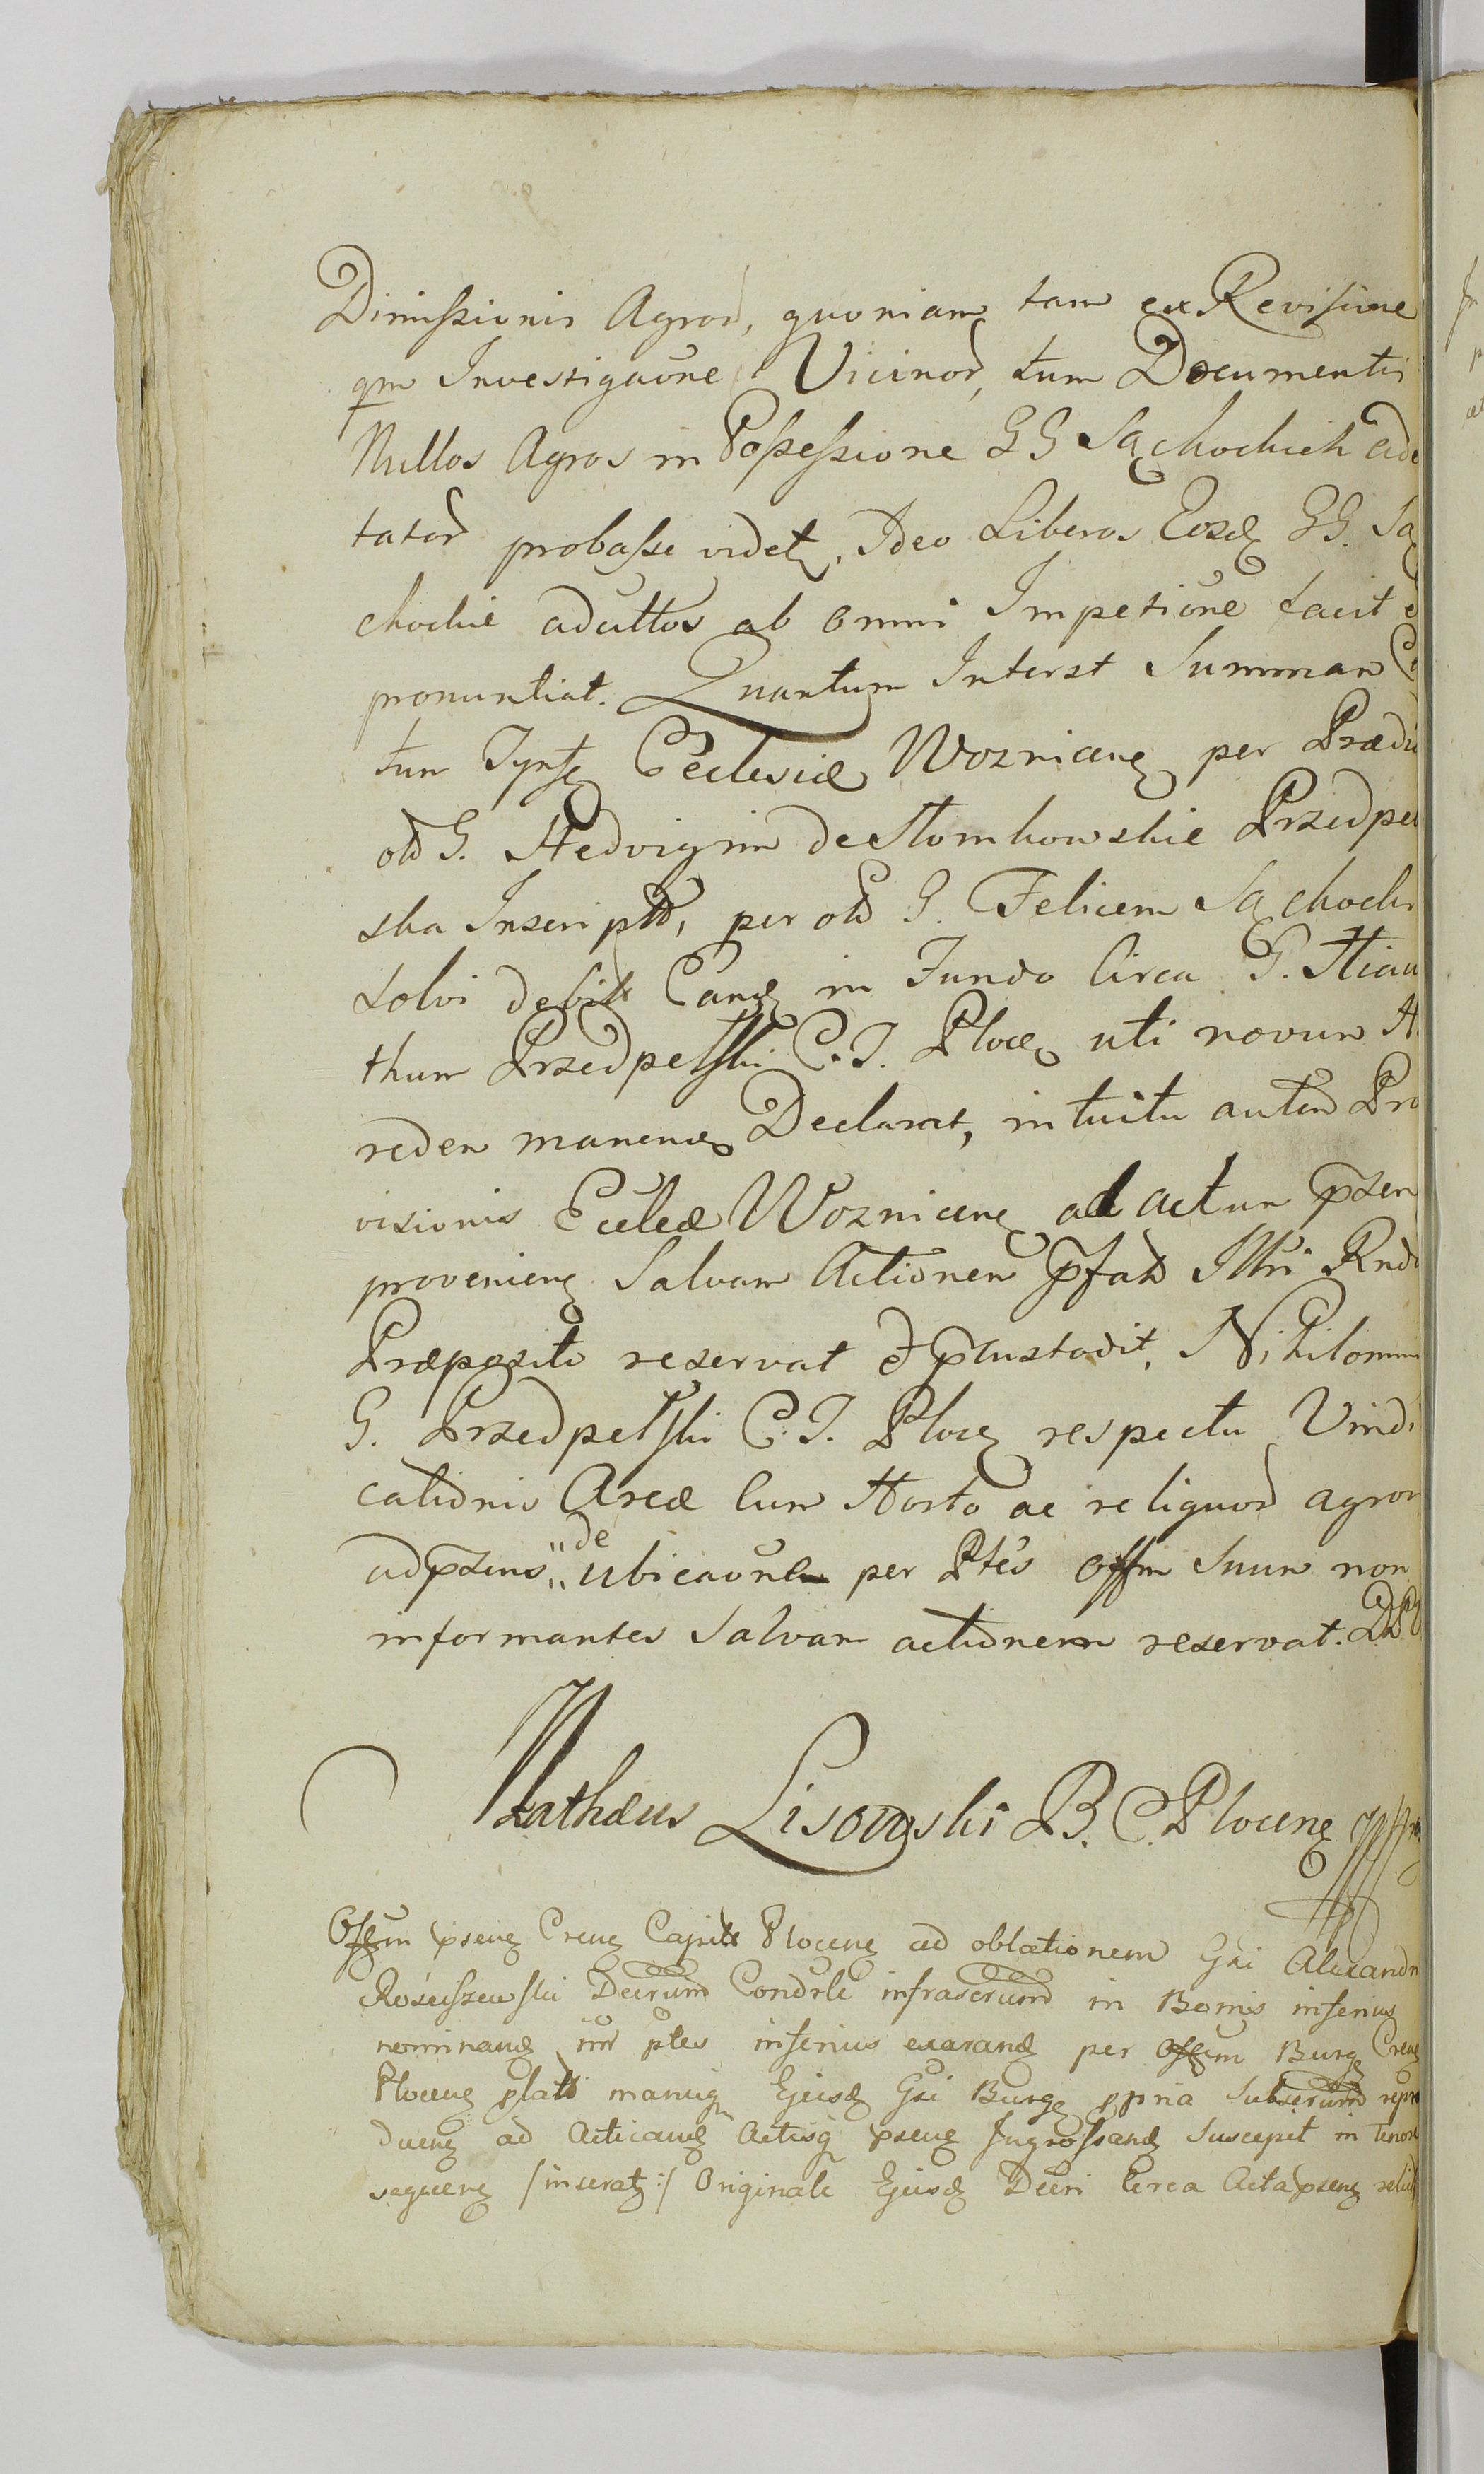 Dimissionis Agror, quoniam tam ex Revisione
qm Investigaone Vicinor, tum Documentis
Nullos Agros in Possessione GG Sąchockich ad
tator probasse videt, Ideo Liberos Eosd GG. Są
chockie ad cittos ab omni Impetione facit
pronuntiat. Quantum Interest Summam
tum Ecclesiæ Woznicen per Prædi
old G. Hedvigim de Słomkowskie Przedpeł
ska Inscript, per old G. Felicem Sąchocki
solvi debit Eand in Fundo Circa G. Hiaci
thum Przedpełski C. T. Ploc uti novum H
redem manen Declarat, intuitu autem Pro
visionis Eccleæ Woznicen ad actum psen
provenien Salvam Actionem pfat Illri Rndi
Præposito reservat & pcustodit, Nihilomin
G. Przedpełski C. T. Ploc respectu Vindi
cationis Areæ cum Horto ac reliquor agror
adpsens de ubicaone per Ptes offm Suum non
informantes Salvam actionem reservat.
Mathæus Lisowski B. C. Plocen
Offm psens Cren Capit Plocen ad oblationem Gsi Alexandri
Rościszewski Decrum Condrle infrascrum in Bonis inferius
nominand inr ptes inferius exarand per Offm Burg Cren
Plocen plat manuq Ejusd Gsi Burg ppria Subscrum repro
ducen ad Acticand Actisq psen Ingrossand Suscepit in Tenore
sequen /inserat:/ Originale Ejusd Decri Circa Acta psen relict